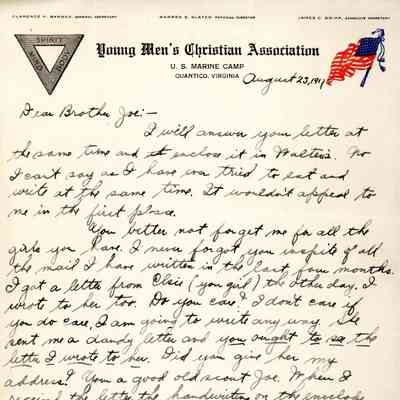 CLARENCE P. GENERAL SECRETARY
WARREN E. SLATER PHYSICAL DIRECTOR
JAMES C. ASSOCIATE SECRETARY
SPIRIT
MIND
BODY
Young Men's Christian Association
U. S. MARINE CAMP
QUANTICO, VIRGINIA
August 23, 1917
Dear Brother Joe:-
I will answer your letter at
the same time and enclose it in Walter's. No
I can't say as I have ever tried to eat and
write at the same time. It wouldn't appeal to
me in the first place.
You better not forget me for all the
girls you have. I never forgot you inspite of all
the mail I have written in the last four months.
I got a letter from Elsie (your girl) the other day. I
wrote to her too. Do you care? I don't care if
you do care, I am going to write any way. She
sent me a dandy letter and you ought to see the
letter I wrote to her. Did you give her my
address? Your a good old scout Joe. When I
received the letter the handwriting on the envelope